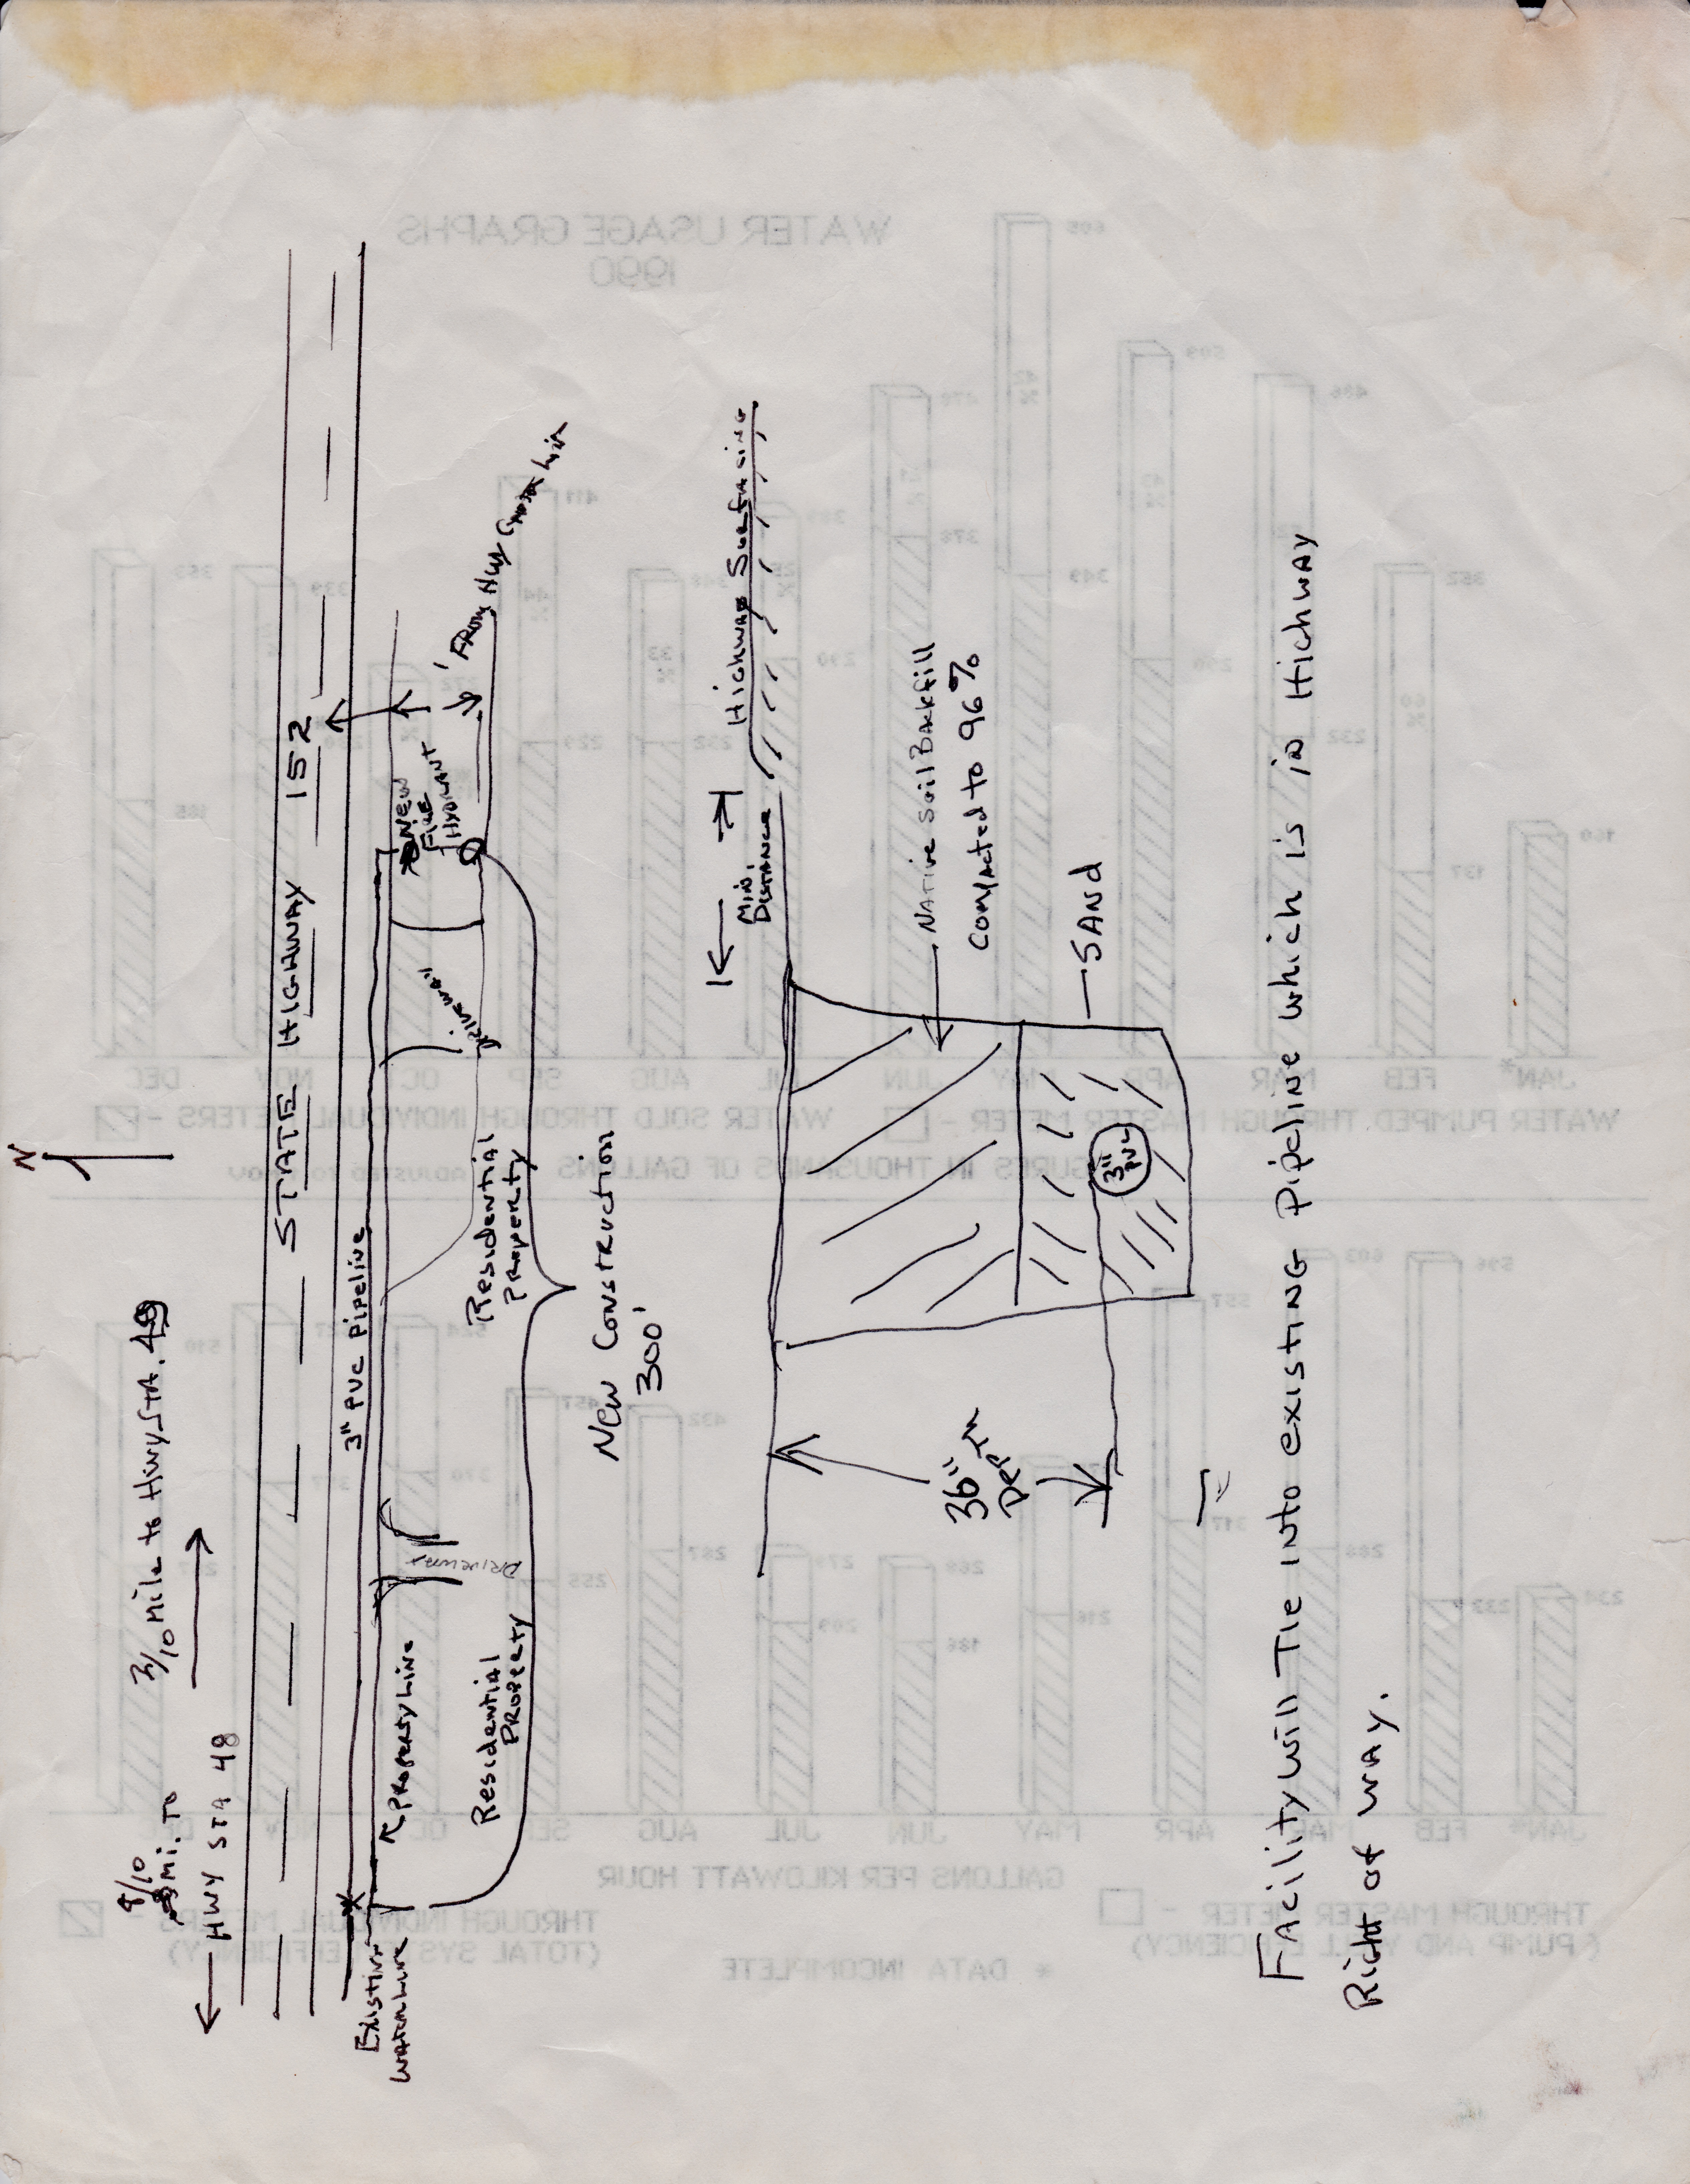 N
8/10
Mi. TO
HWY STA 48
3/10 Mile to Hwy STA. 49
STATE HIGHWAY 152
3" PVC Pipeline
Existing
Waterline
Property Line
Driveway
Driveway
Residential
Property
Residential
Property
New
Fire
Hydrant
From Hwy Center Lin
New Construction
300'
Min.
Distance
Highway Surfacing
Native Soil Backfill
Compacted to 96%
SAND
3"
PVC
36" IN
DEPTH
Facility will Tie Into existing Pipeline which is in Highway
Right of way.
WATER USAGE GRAPHS
1990
DEC NOV OC SEP AUG JUL JUN MAY APR MAR FEB JAN*
WATER PUMPED THROUGH MASTER METER -
WATER SOLD THROUGH INDIVIDUAL METERS -
FIGURES IN THOUSANDS OF GALLONS
GALLONS PER KILOWATT HOUR
THROUGH MASTER METER -
(PUMP AND WELL EFFICIENCY)
THROUGH INDIVIDUAL METERS -
(TOTAL SYSTEM EFFICIENCY)
* DATA INCOMPLETE